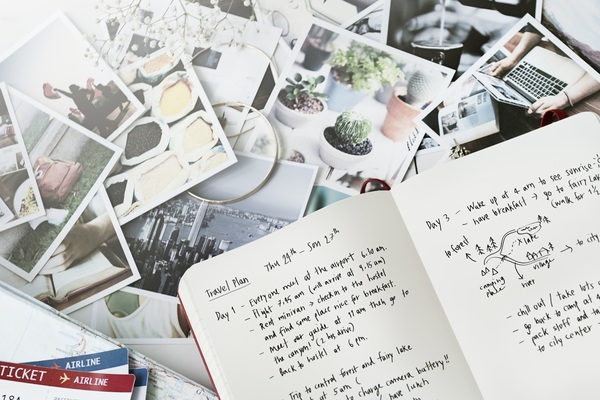 Travel Plan
Thu 29th – Sun 23th
Day 1 - Everyone meet at the airport 6.10 am.
- Flight 7.45 am (will arrive at 9.15 am)
- Rent minivan > checkin to the hostel
and find some place nice for breakfast.
- Meet our guide at 11 am then go to
the canyon. (2 hrs drive)
- Back to hostel at 6 pm.
- Trip to central forest and fairy lake
at 5 am (
to charge camera battery!!
have lunch
Day 3 - Wake up at 4 am to see sunrise
- have breakfast → go to fairy lake
(walk for
to forest
lake
to city
camping
village
river
- chill out / take
- go back to camp at 4
- pack stuff and
to city center
AIRLINE
TICKET
AIRLINE
18A